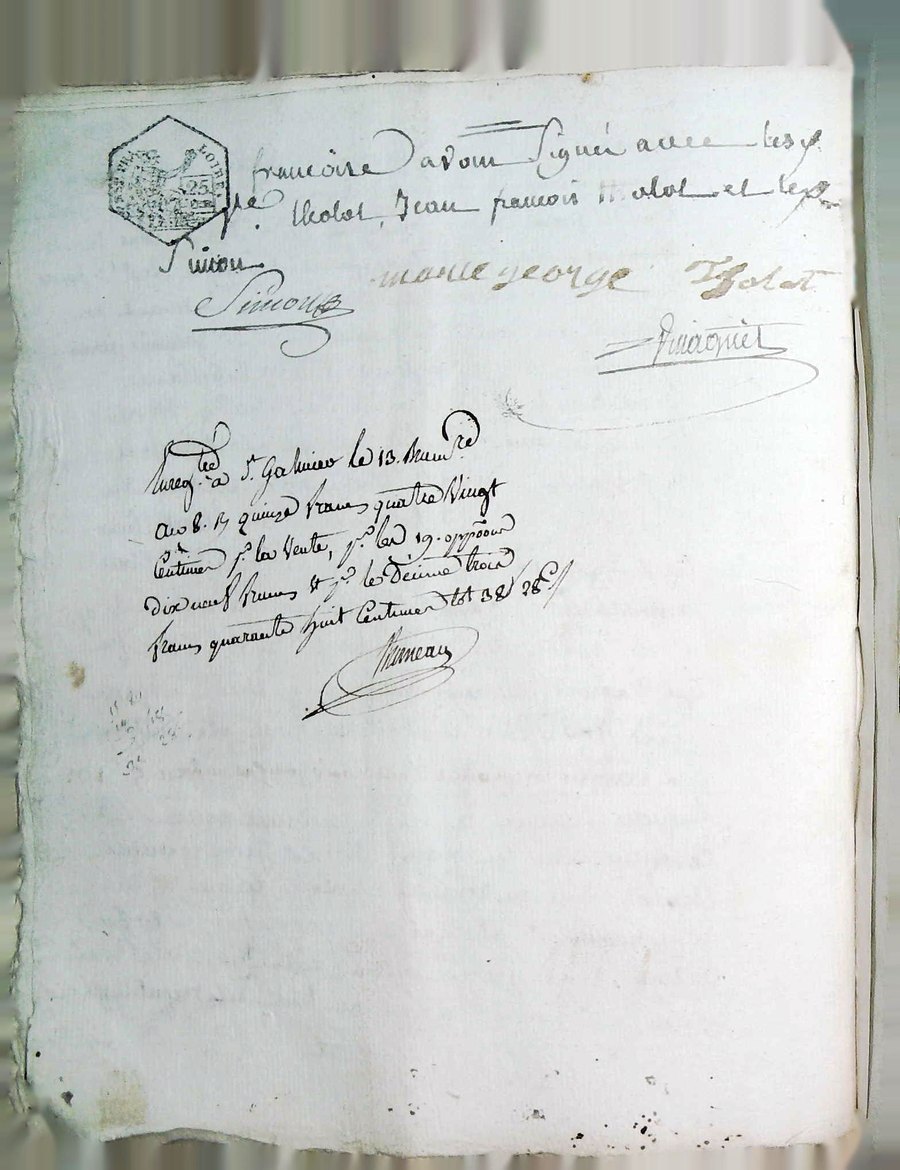 LOIRE
25
françoise avons Signé avec les
Tholot, Jean françois Tholot et le
Simon
Simon marie george Tholot
Enreg.tré à St. Galmier le 13. brum.re
an 8. R quinze francs quatre Vingt
Centimes pr. la Vente, pr. les 19. oppõons
dix neuf francs & pr. le Décime trois
francs quarante huit Centimes tot 38f 28c